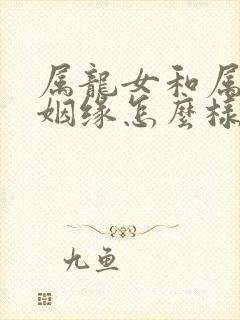 属龍女和属
姻缘怎麼様
九鱼